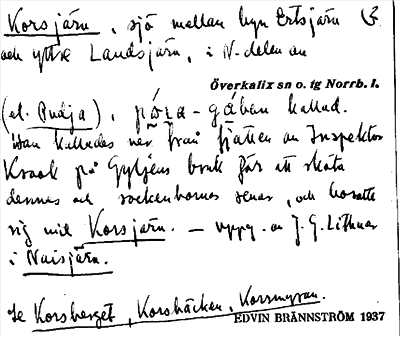 Korsjärn, sjö mellan byn Ertsjärn
och yttre Landsjärn, i N-delen av
Överkalix sn o. tg Norrb. l.
(el. Pudja), kallad.
Han kallades ner från fjällen av Inspektor
Kraak på Gyljens bruk för att sköta
dennes och sockenbornas renar, och bosatte
sig vid Korsjärn. – uppg. av J.G. Lithner
i Naisjärn.
Se Korsberget, Korsbäcken, Korsmyran.
EDVIN BRÄNNSTRÖM 1937